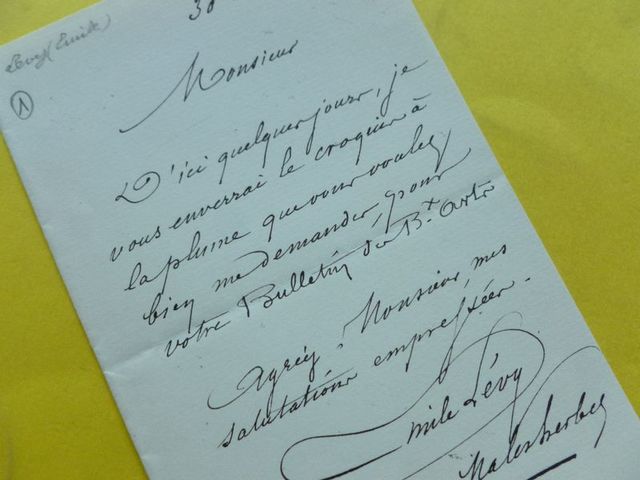 30
Lévy (Emile)
1
Monsieur
D'ici quelques jours, je
vous enverrai le croquis à
la plume que vous voulez
bien me demander, pour
votre Bulletin des Bx Arts
Agréez, Monsieur, mes
salutations empressées.
Emile Lévy
Malesherbes